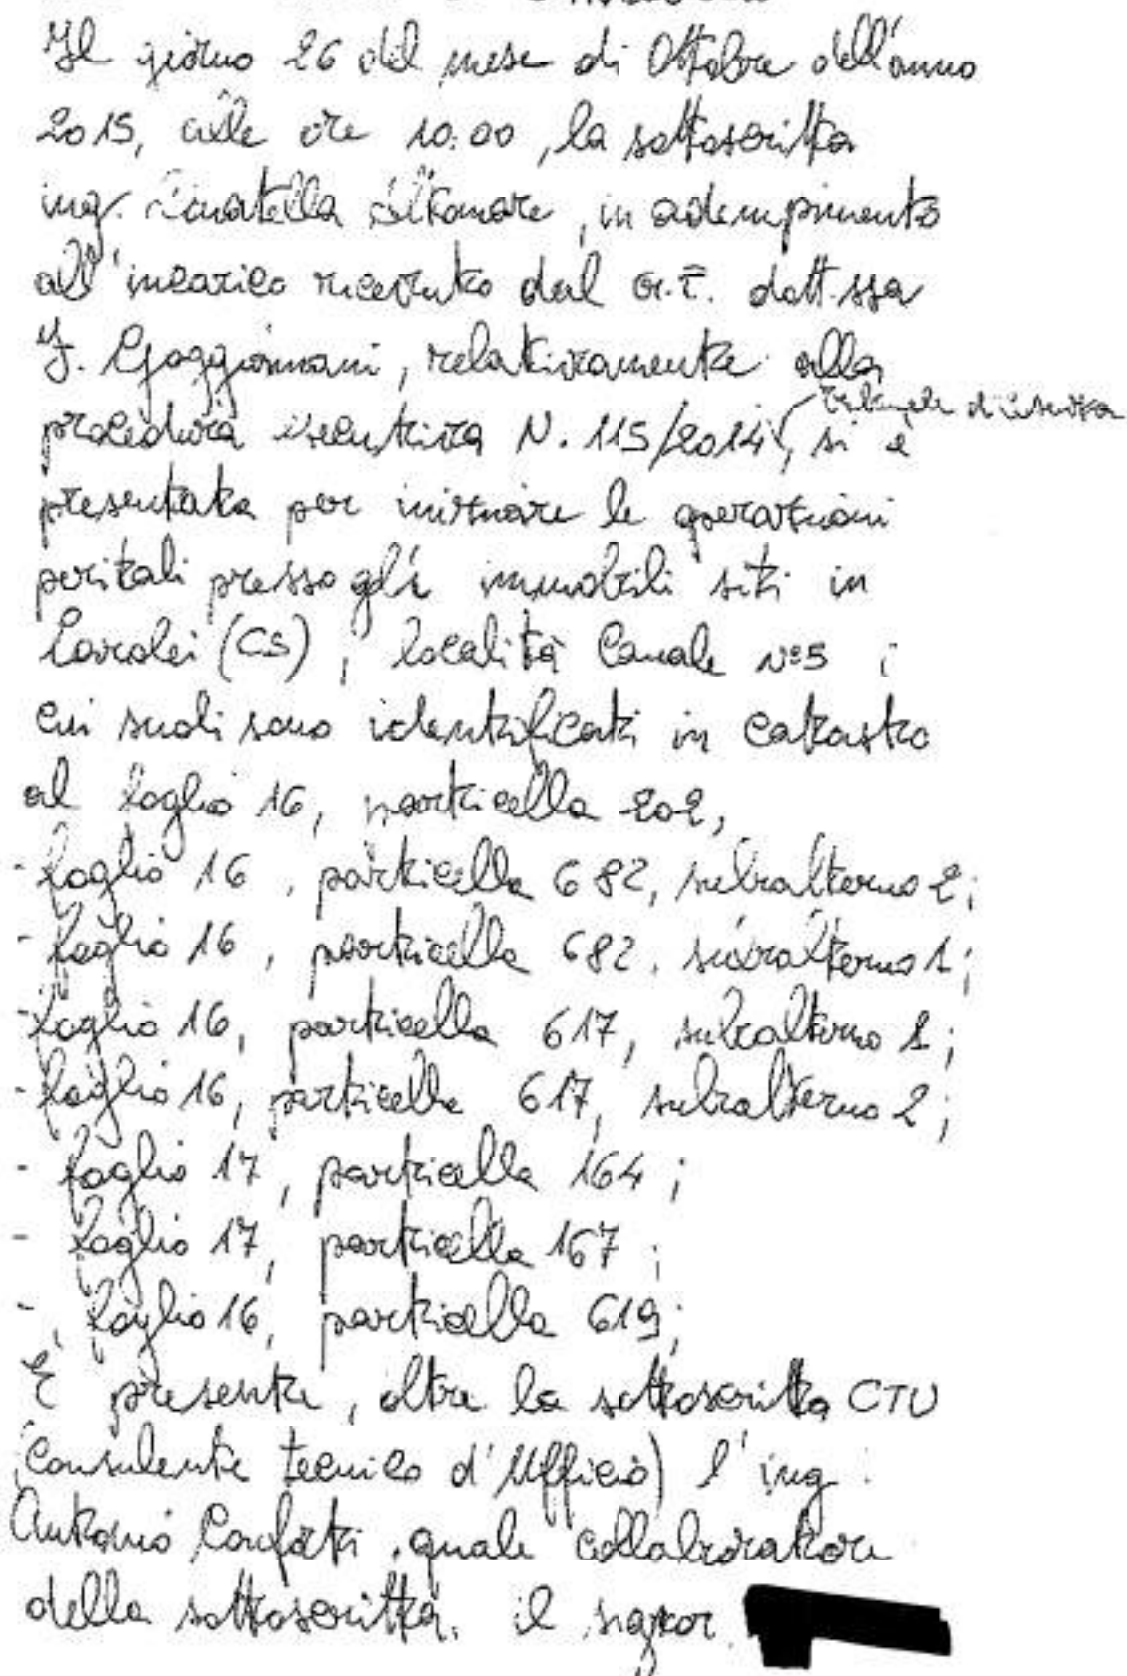 Il giorno 26 del mese di Ottobre dell'anno
2015, alle ore 10:00, la sottoscritta
ing. Donatella Altomare, in adempimento
all'incarico ricevuto dal G.E. dott.ssa
F. Goggiamani, relativamente alla
Tribunale di Cosenza
procedura esecutiva N. 115/2014, si è
presentata per iniziare le operazioni
peritali presso gli immobili siti in
Carolei (CS), località Canale n°5 i
cui suoli sono identificati in catasto
al foglio 16, particella 202,
- foglio 16, particella 682, subalterno 2;
- foglio 16, particella 682, subalterno 1;
- foglio 16, particella 617, subalterno 1;
- foglio 16, particella 617, subalterno 2;
- foglio 17, particella 164;
- foglio 17, particella 167;
- foglio 16, particella 619;
E' presente, oltre la sottoscritta CTU
(Consulente tecnico d'Ufficio) l'ing.
Antonio Conforti, quale collaboratore
della sottoscritta, il signor